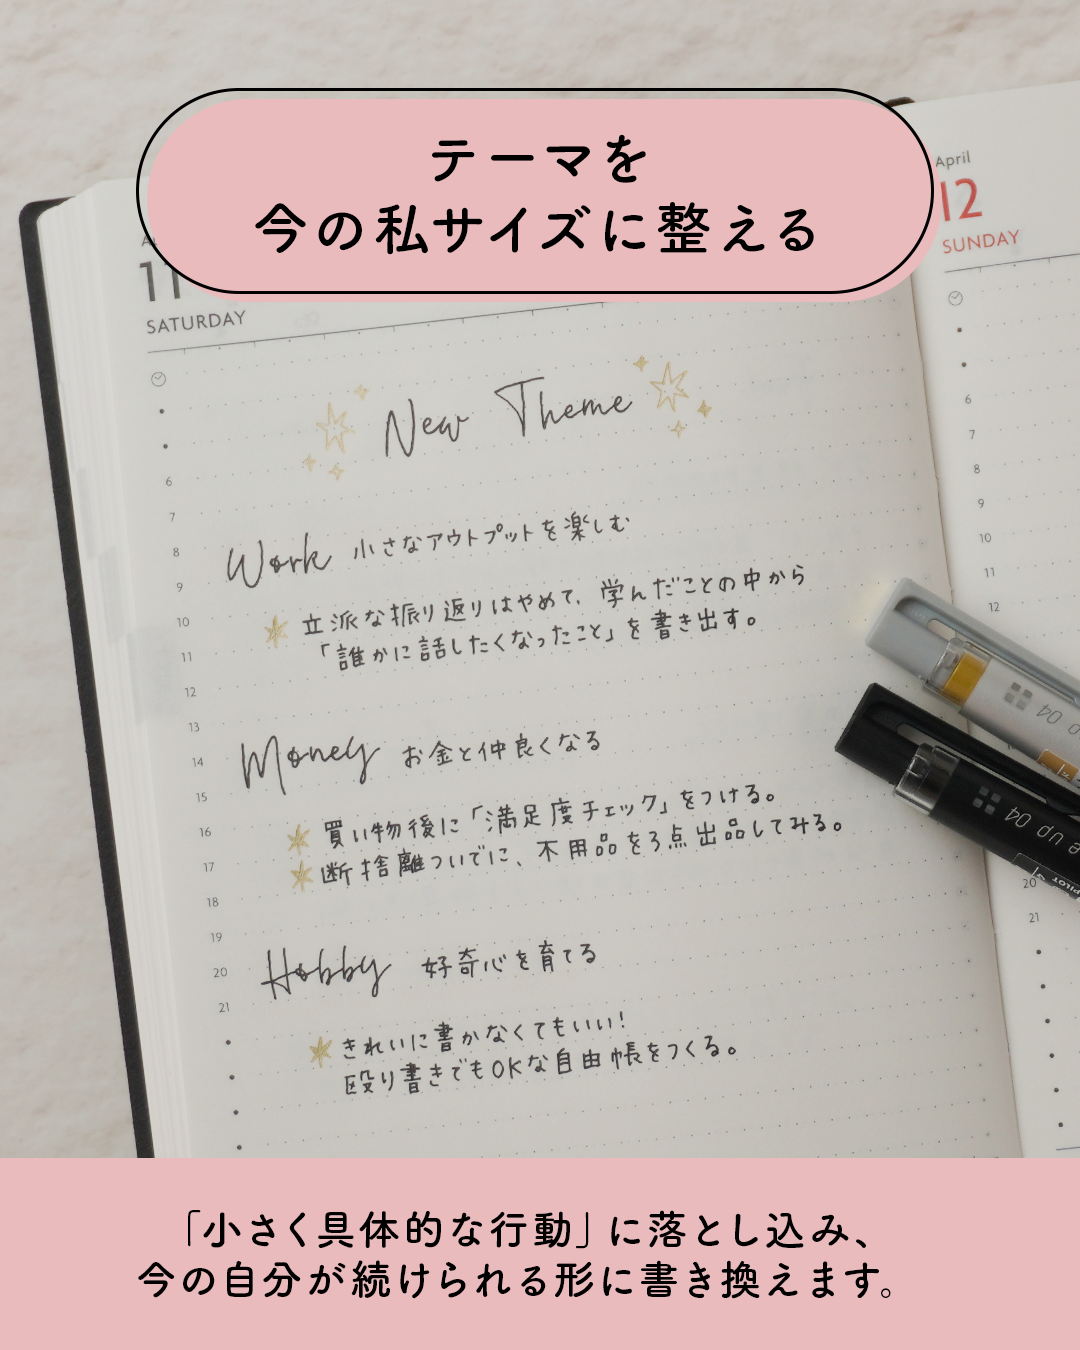 テーマを
今の私サイズに整える
11
SATURDAY
April
12
SUNDAY
New Theme
6
7
8
9
10
11
12
13
14
15
16
17
18
19
20
21
Work 小さなアウトプットを楽しむ
立派な振り返りはやめて、学んだことの中から
「誰かに話したくなったこと」を書き出す。
Money お金と仲良くなる
買い物後に「満足度チェック」をつける。
断捨離ついでに、不用品を3点出品してみる。
Hobby 好奇心を育てる
きれいに書かなくてもいい!
殴り書きでもOKな自由帳をつくる。
6
7
8
9
10
11
12
20
21
p 04
e up 04
PILOT
「小さく具体的な行動」に落とし込み、
今の自分が続けられる形に書き換えます。